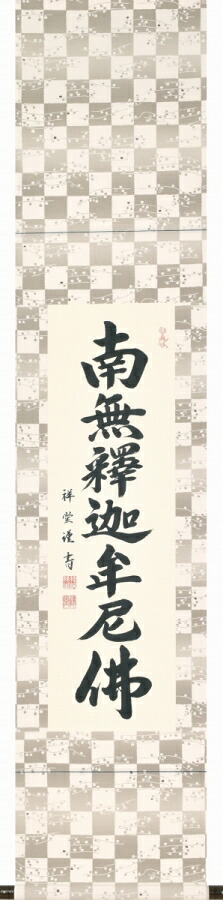 南無釋迦牟尼佛
祥堂謹書